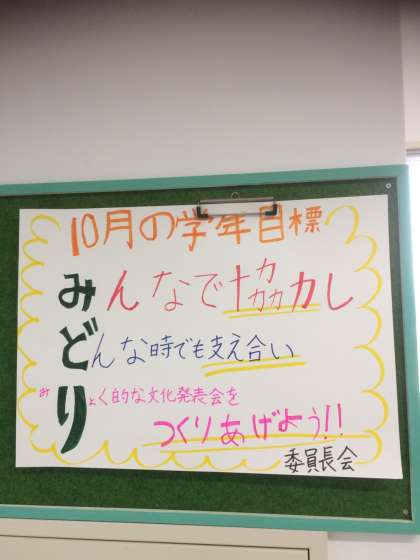 10月の学年目標
みんなで協力し
どんな時でも支え合い
みりょく的な文化発表会を
つくりあげよう!!
委員長会